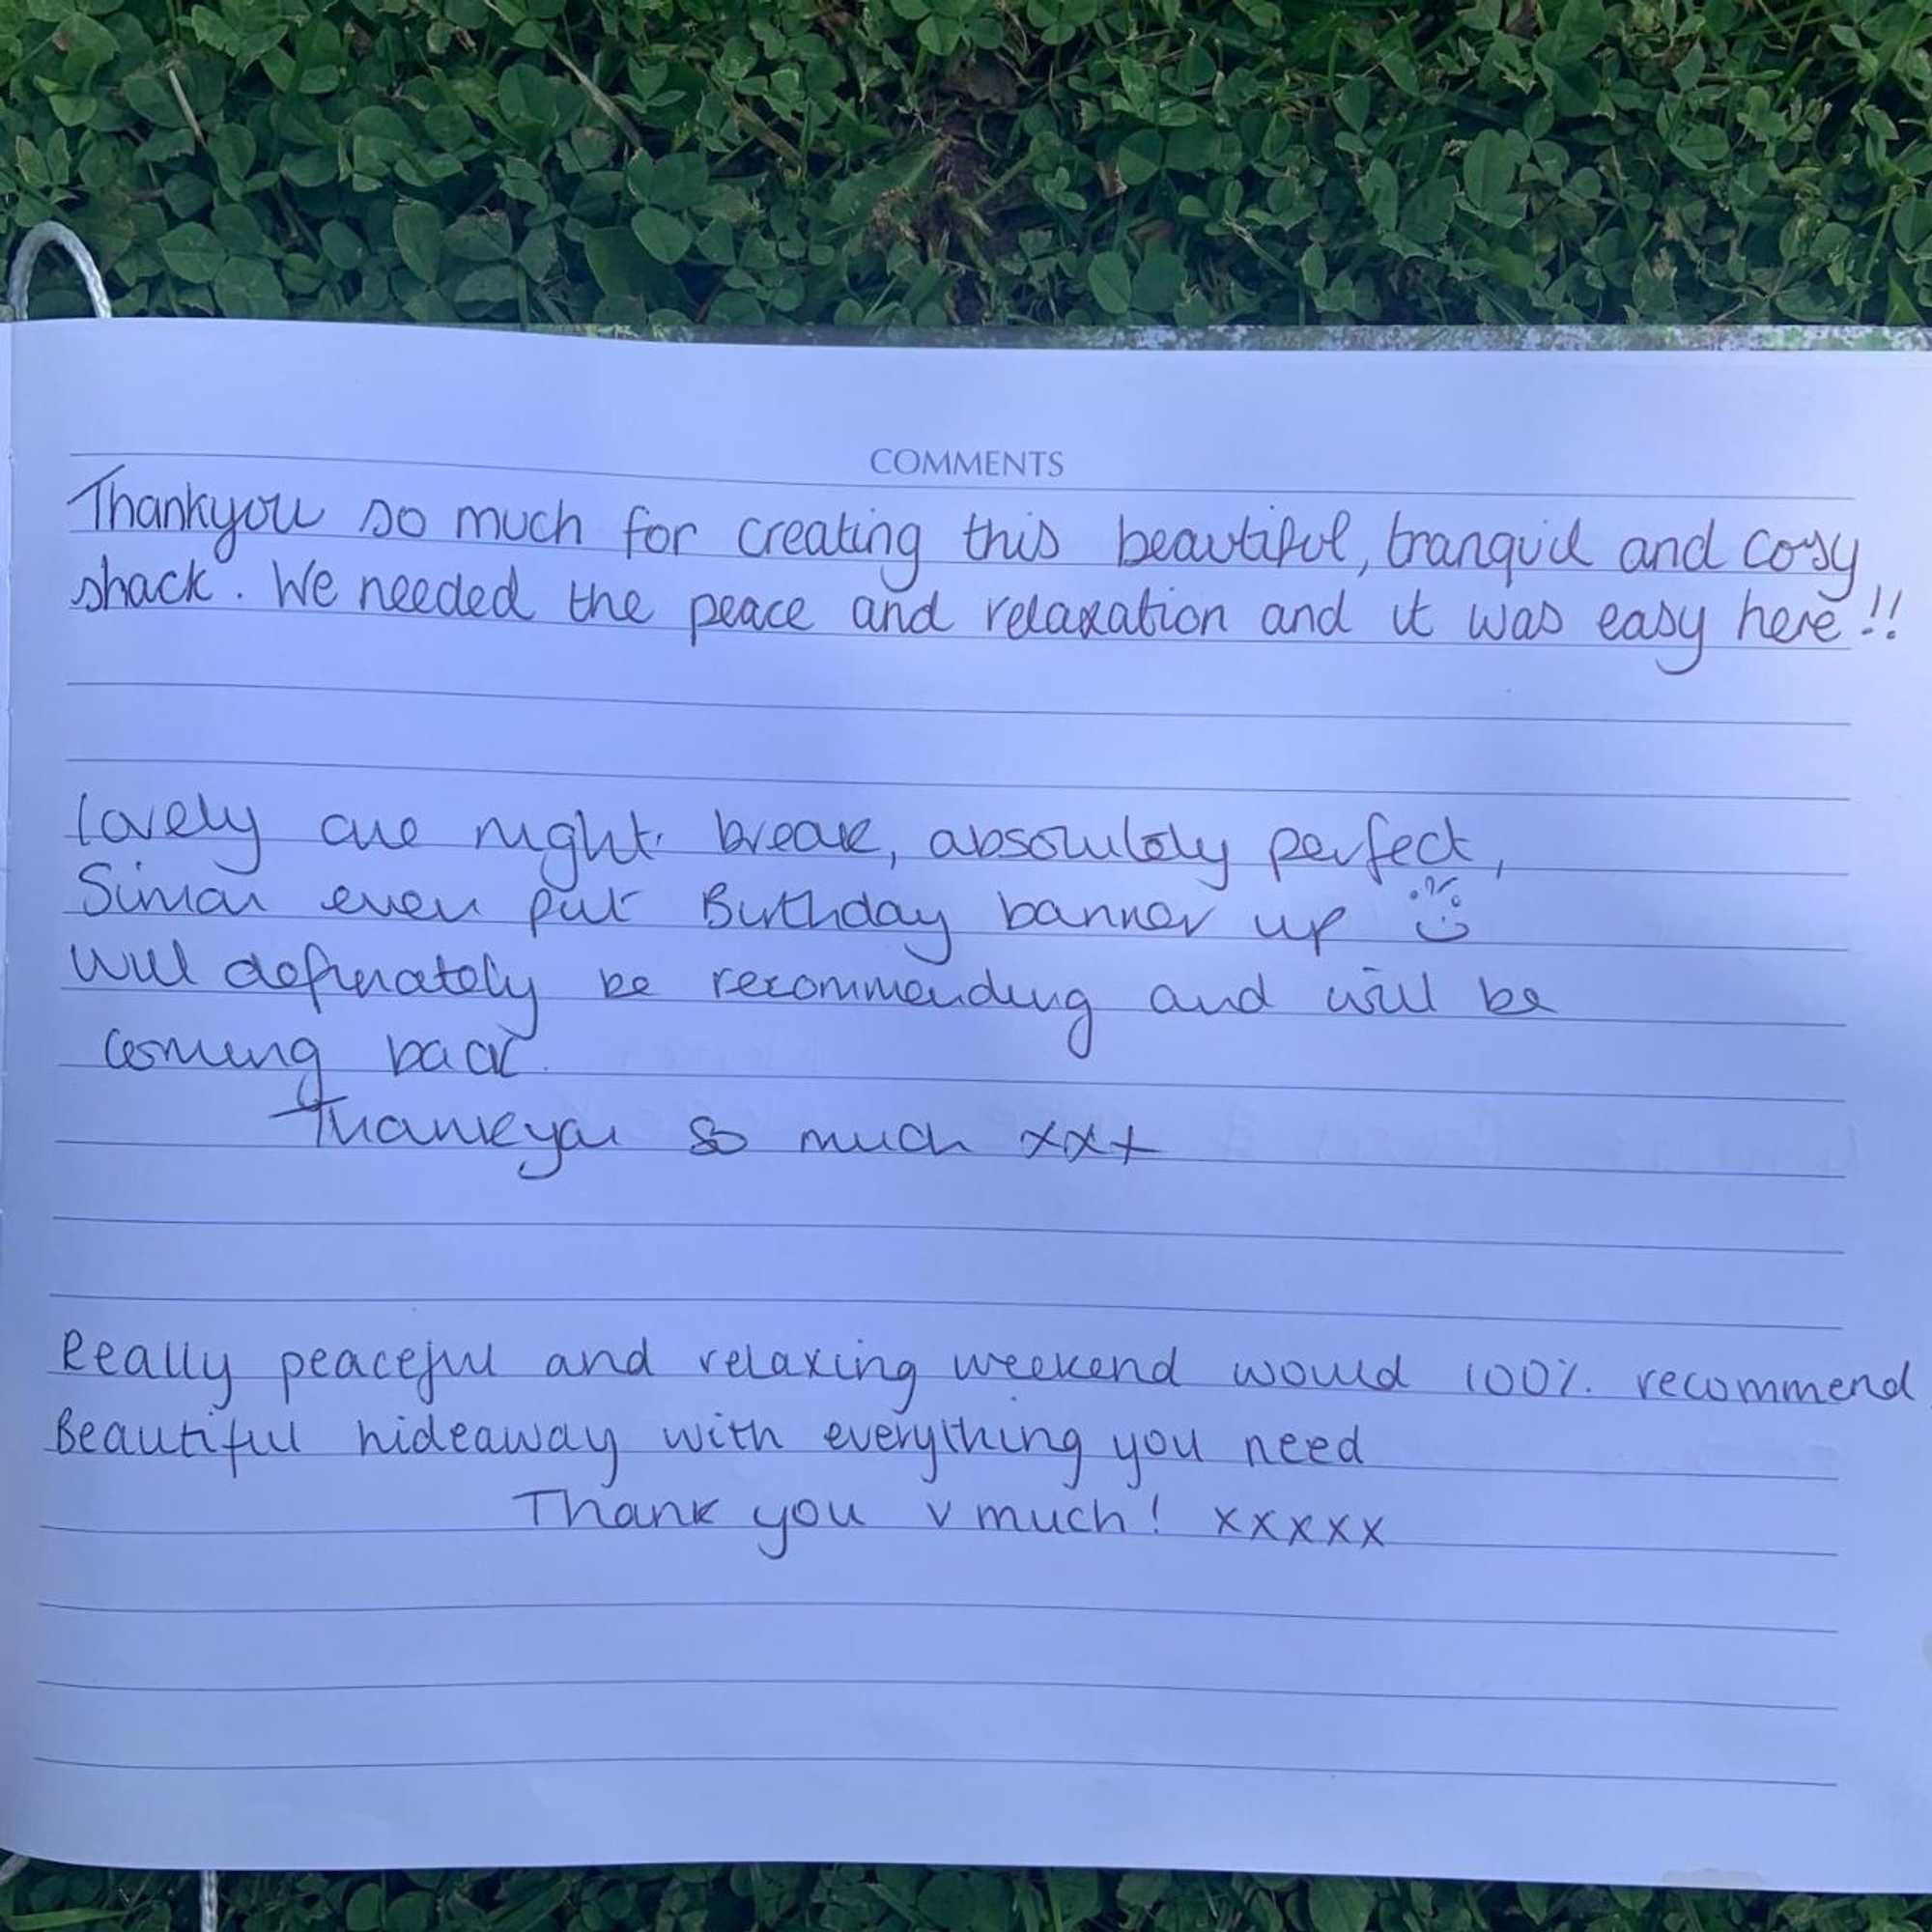 COMMENTS
Thankyou so much for creating this beautiful, tranquil and cosy
shack. We needed the peace and relaxation and it was easy here!!
Lovely one night break, absolutely perfect,
Simon even put Birthday banner up
Will definately be recommending and will be
coming back.
Thankyou so much xxx
Really peaceful and relaxing weekend would 100% recommend
Beautiful hideaway with everything you need
Thank you v much! xxxxx